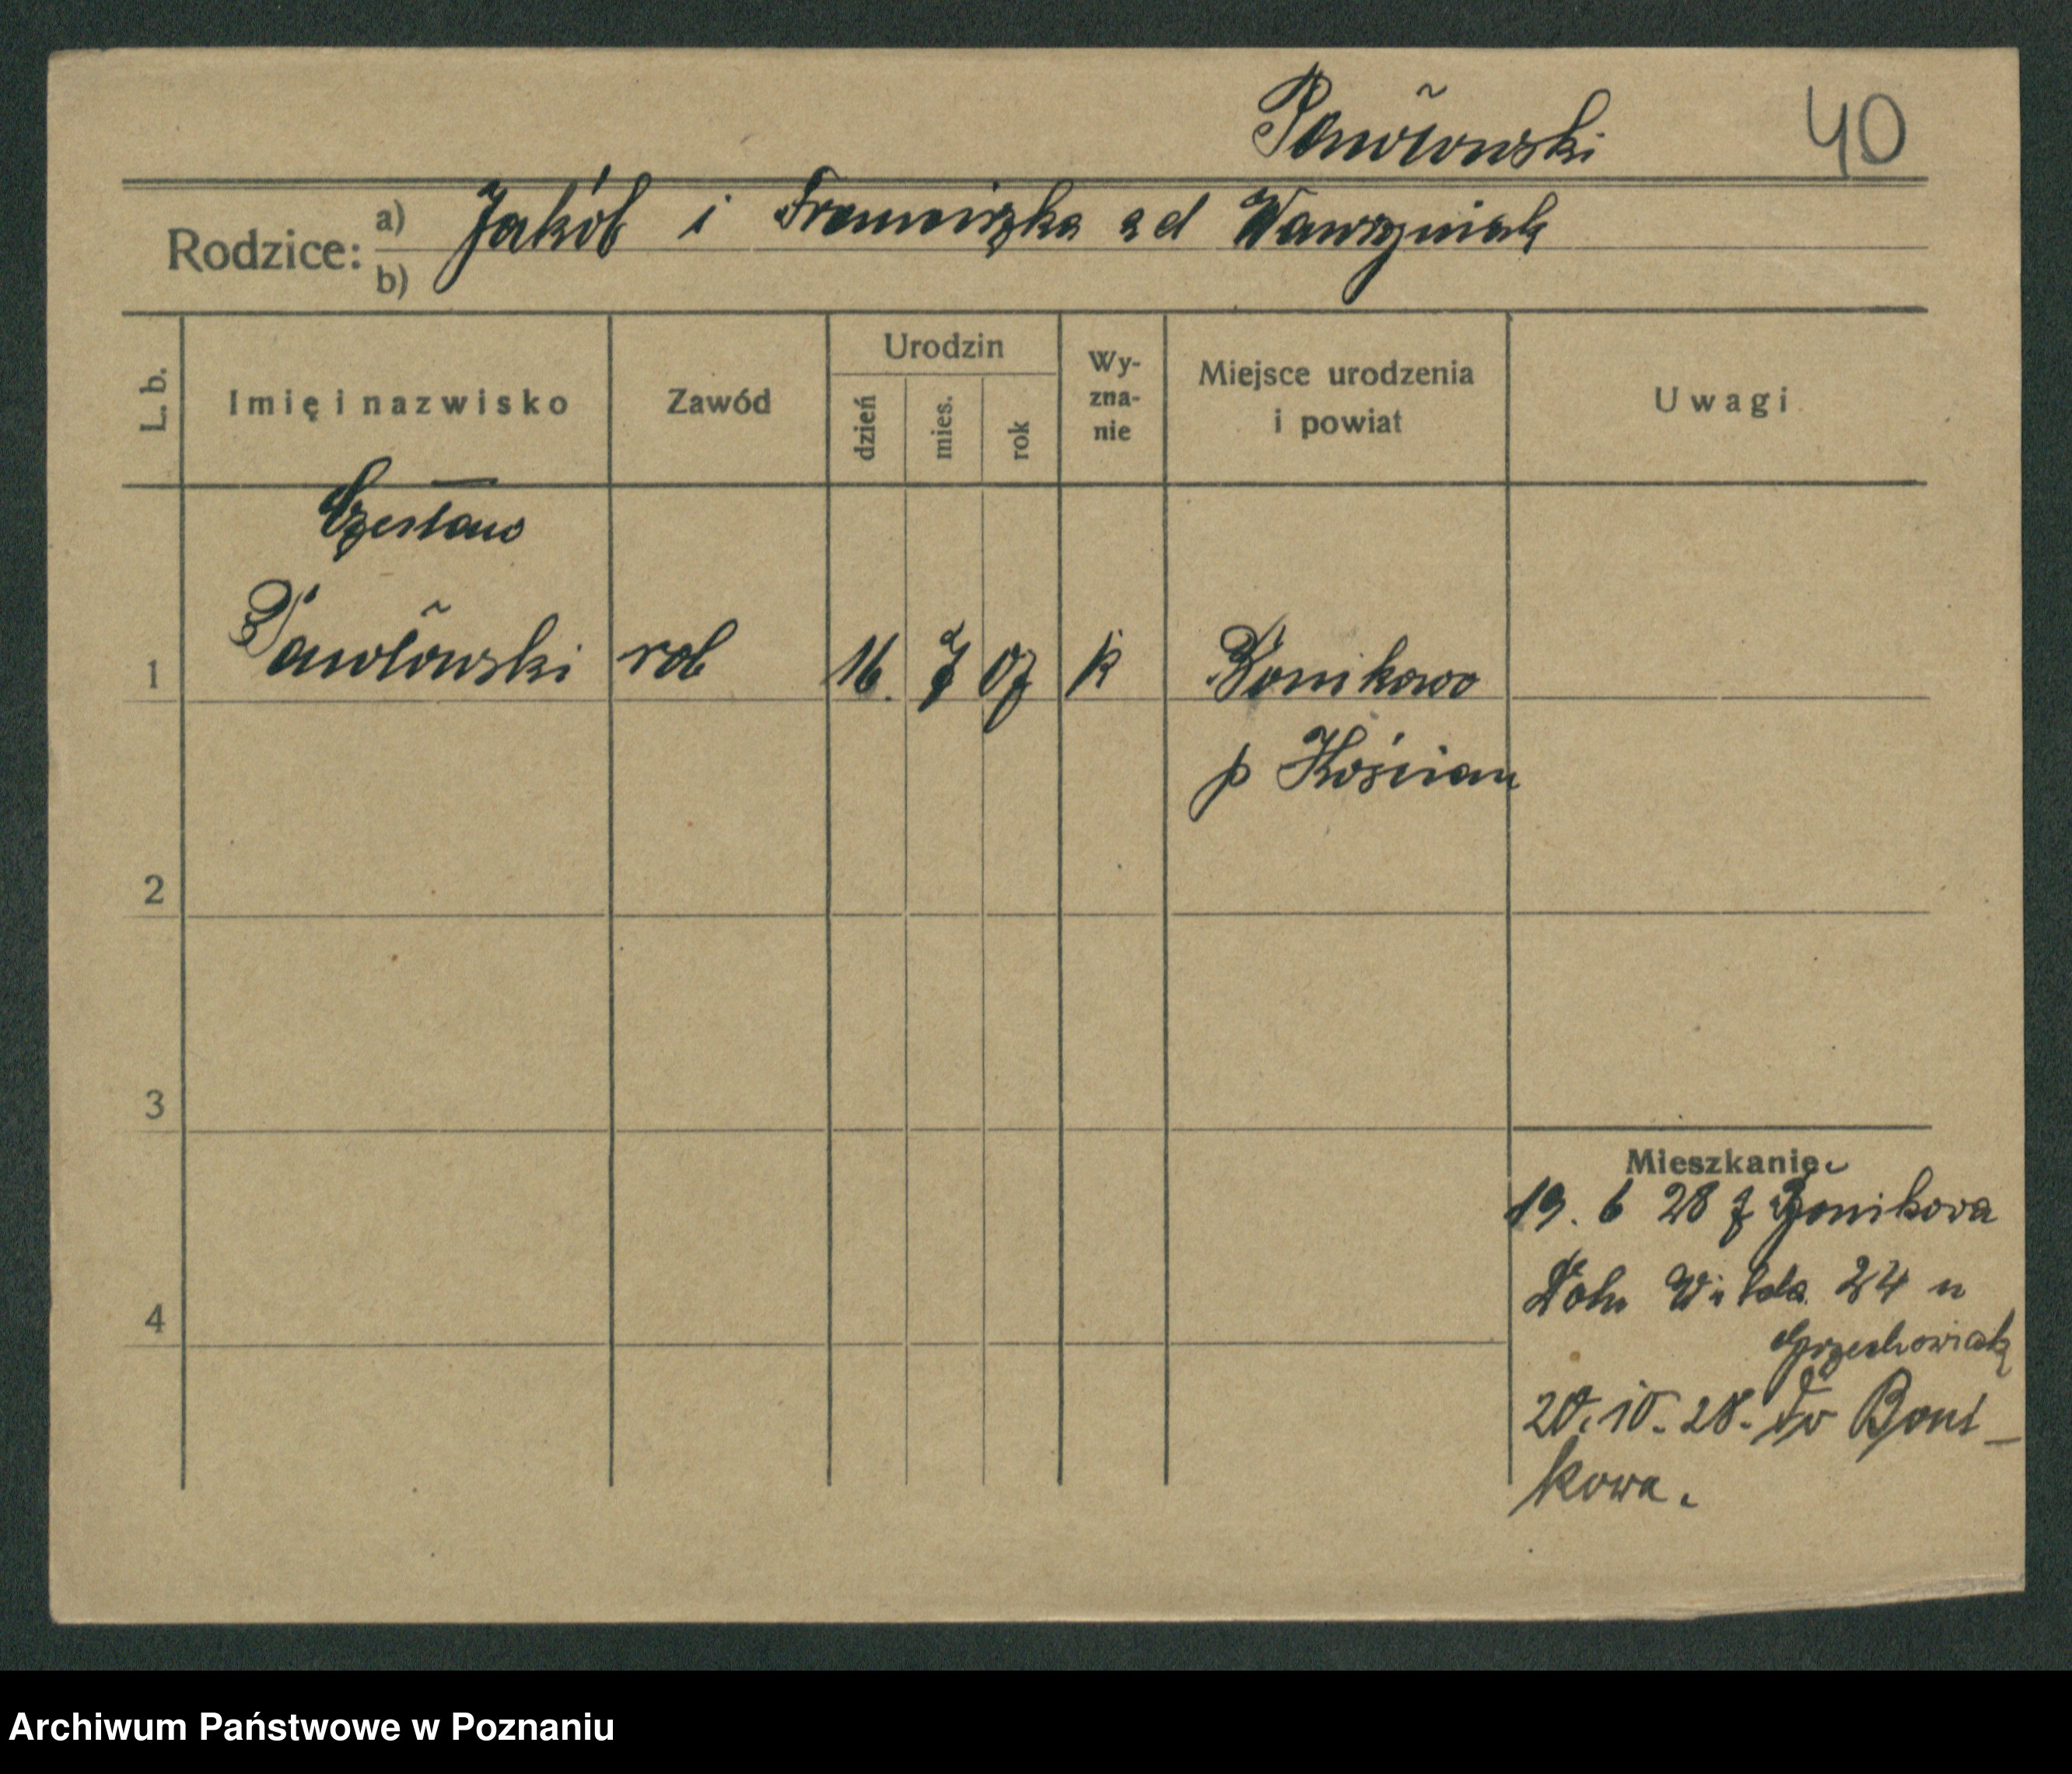 Pawłowski 40
Rodzice: a) Jakób i Franciszka zd Wawrzyniak
b)
L. b. Imię i nazwisko Zawód Urodzin dzień mies. rok Wy-zna-nie Miejsce urodzenia i powiat Uwagi
Czesław
1 Pawłowski rob 16. 7 07 k Bonikowo
p Kościan
2
3
Mieszkanie
19. 6 28 z Bonikowa
4 Doln Wilda 24 u
Grzechowiak
20. 10. 28. do Boni-
kowa.
Archiwum Państwowe w Poznaniu